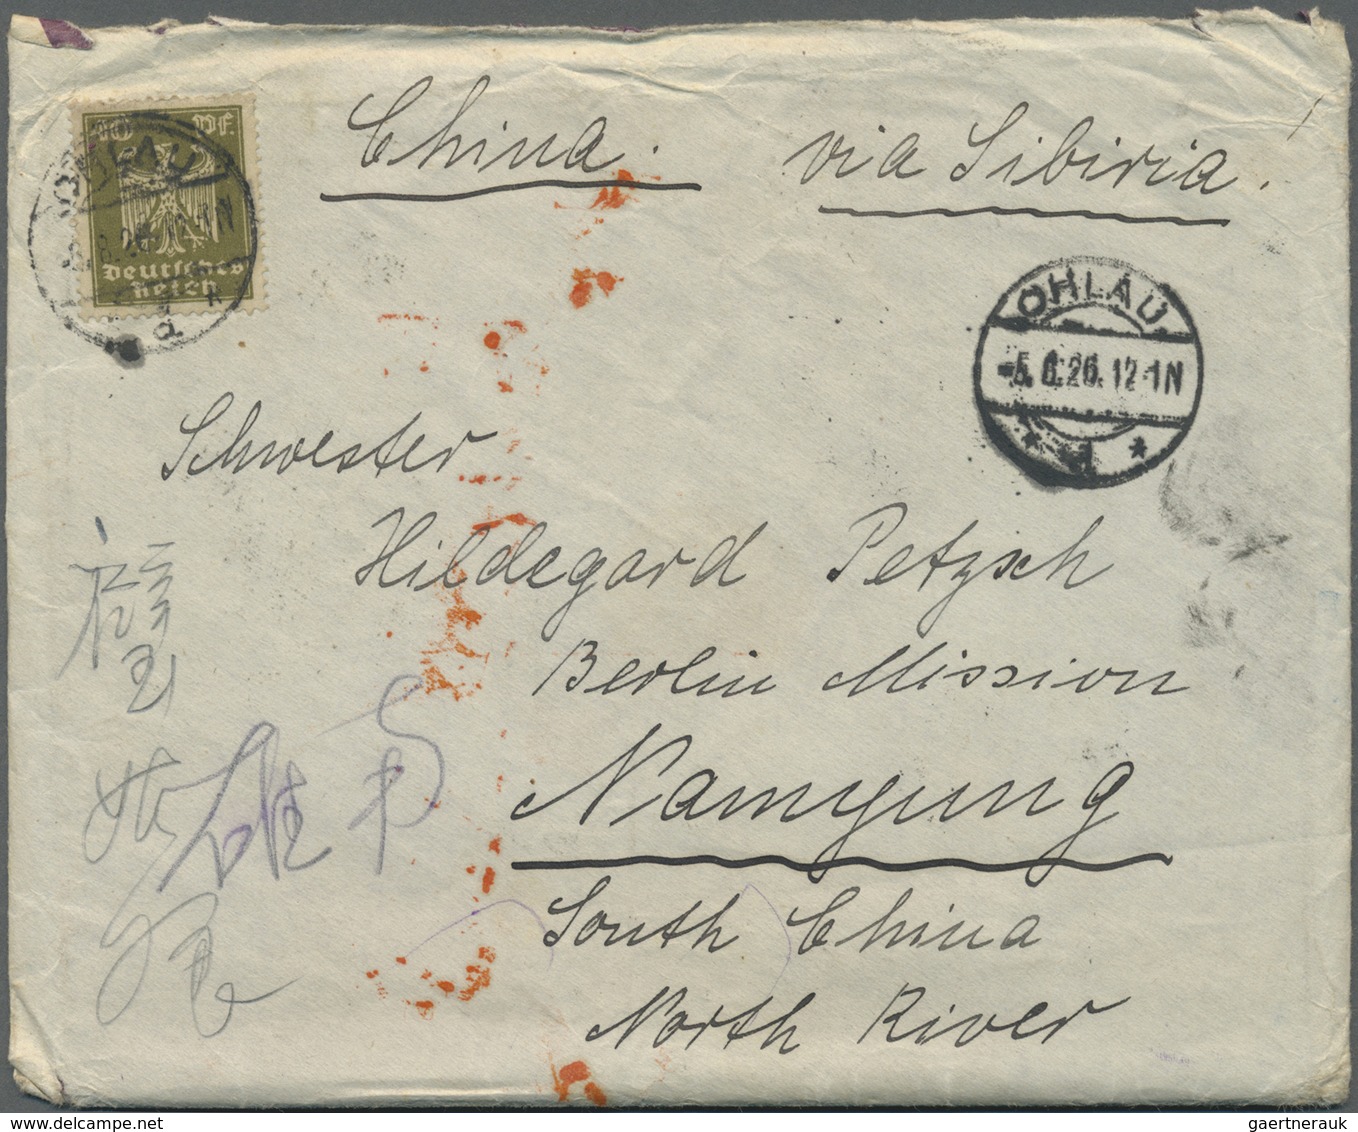 China. via Sibiria!
40 Pf.
OHLAU
Deutsches
Reich
OHLAU
-5.6.26.12-1N
* d *
Schwester
Hildegard Petzsch
Berlin Mission
Namyung
South China
North River
gaertnerauk @ delcampe.net